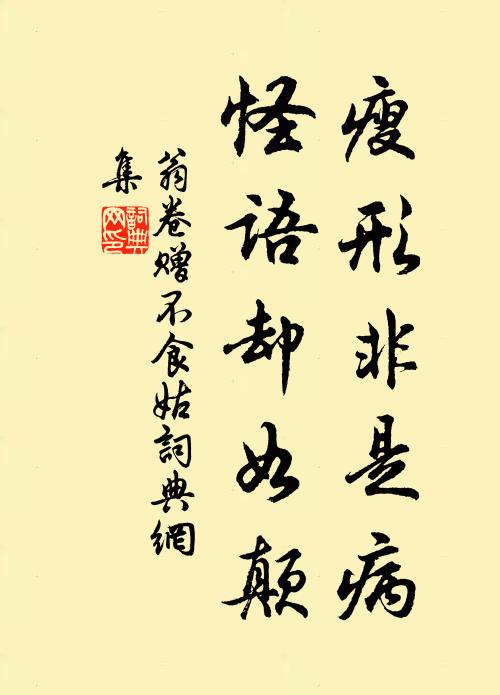 瘦形非是病
怪语却如颠
翁卷赠不食姑詞典網
集
詞典
网印